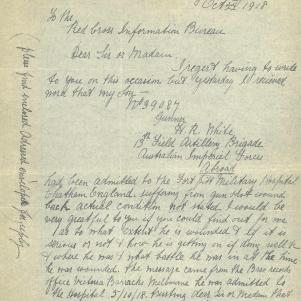 Oct 1918
To the
Red Cross Information Bureau
Dear Sir or Madam.
I regret having to write
to you on this occasion but yesterday I received
word that my Son —
No 39087
Gunner
H. R. White
13th Field Artillery Brigade
Australian Imperial Forces
Abroad
had been admitted to the Fort Pitt Military Hospital
Chatham England suffering from gun shot wound
back actual condition not stated. I would be
very grateful to you if you could find out for me
as to what extent he is wounded & if it is
serious or not & how he is getting on if doing well &
& where he was & what battle he was in at the time
he was wounded. The message came from the Base records
office Victoria Barracks Melbourne he was admitted to
the Hospital 5/10/18. Trusting dear Sir or Madam that
(please find enclosed Addressed envelope for reply)